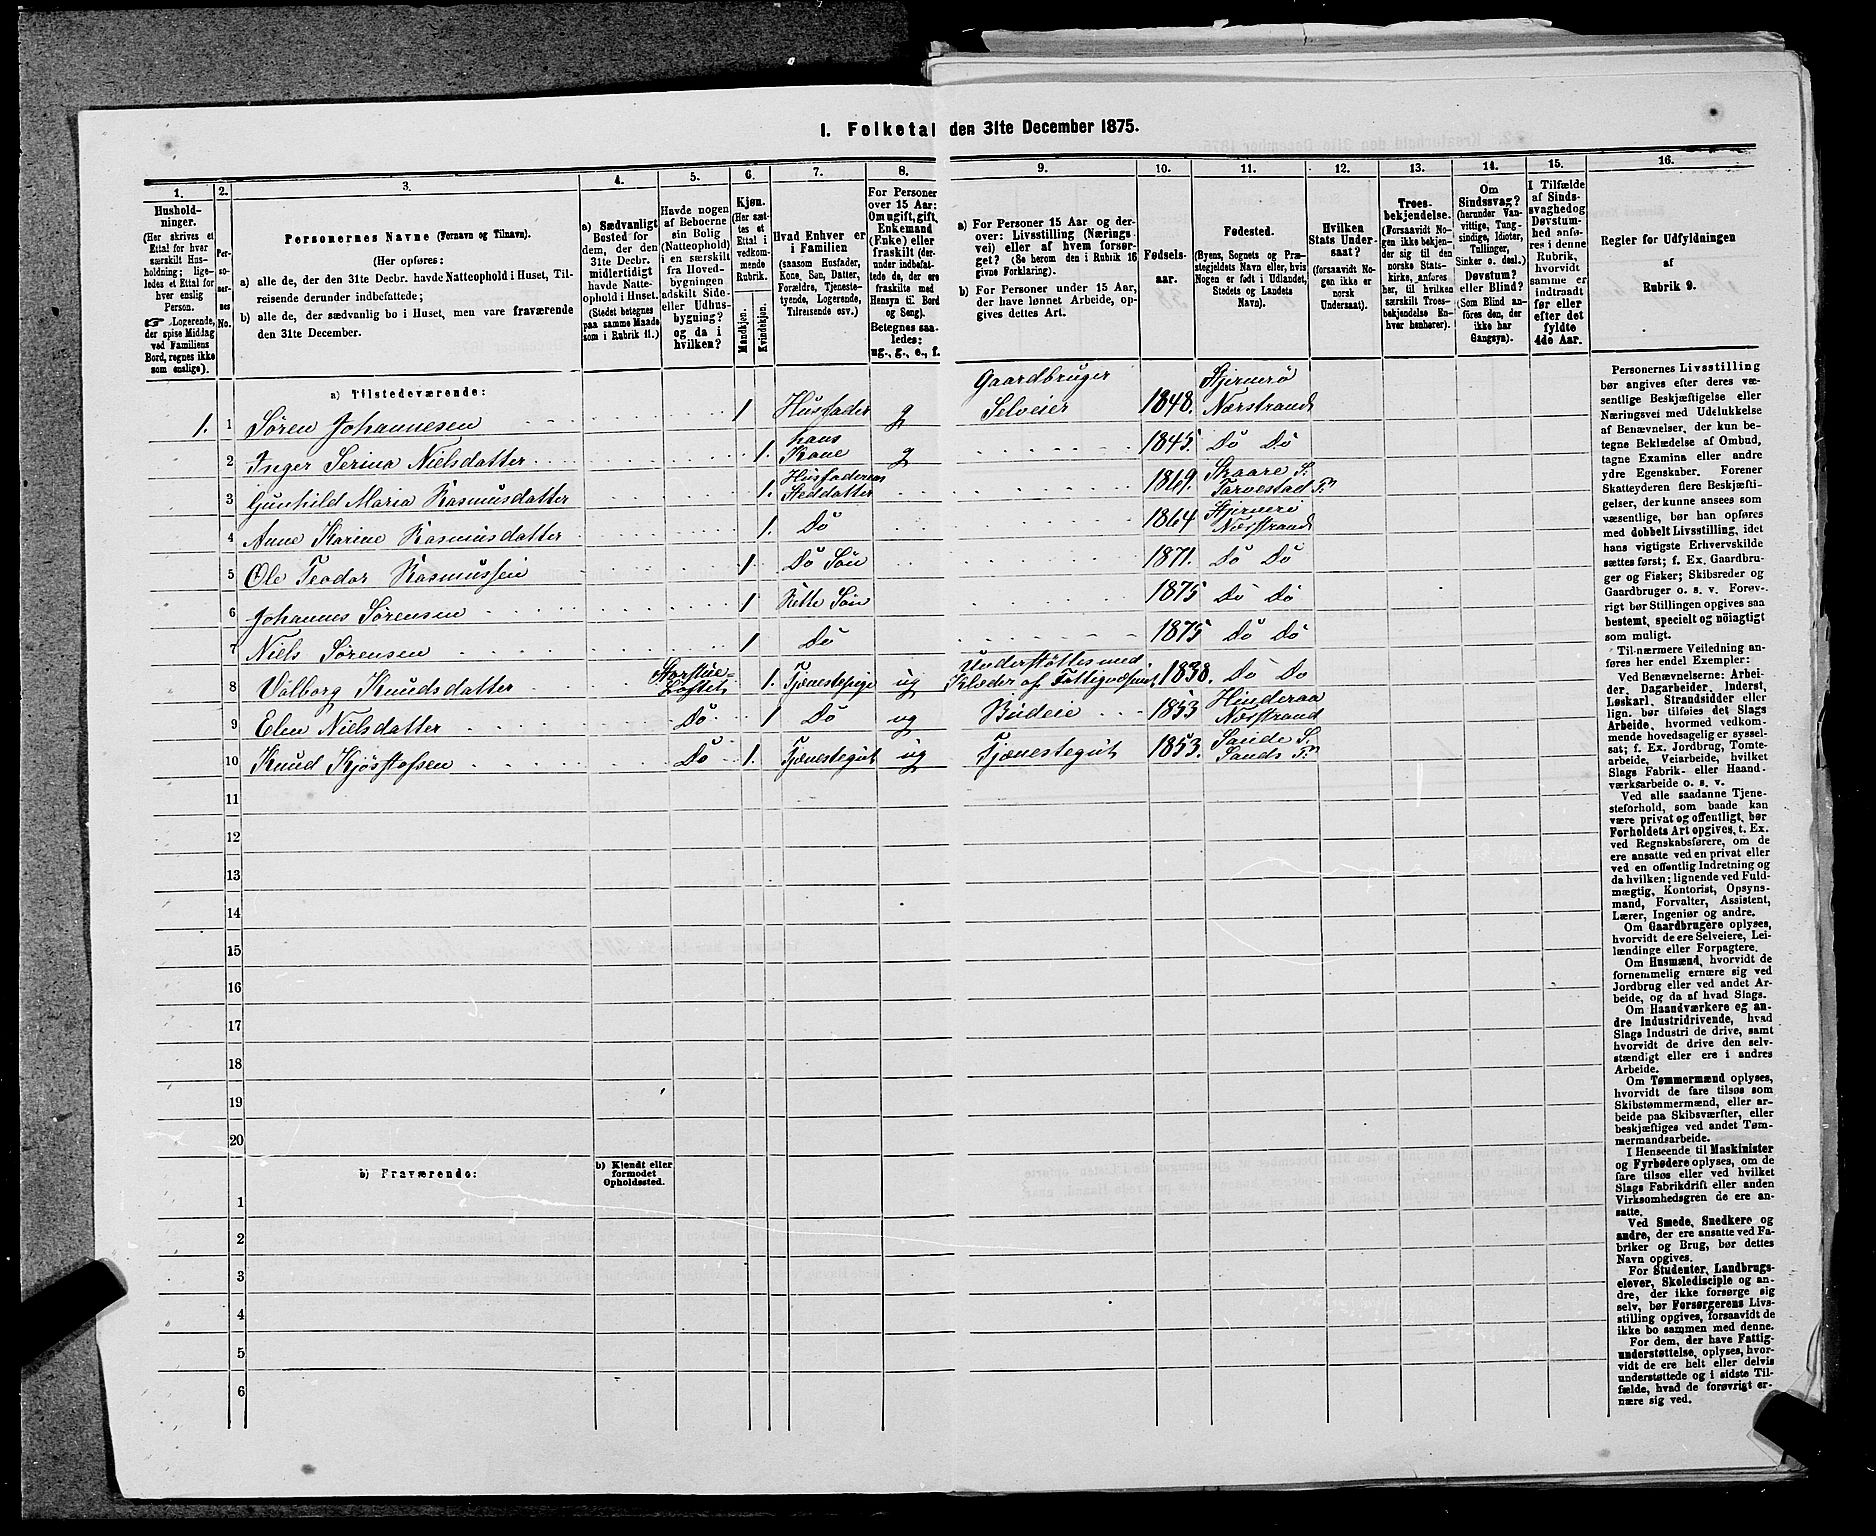 I. Folketal den 31te December 1875.
1. 2. 3. 4. 5. 6. 7. 8. 9. 10. 11. 12. 13. 14. 15. 16.
Hushold-
ninger.
(Her skrives et
Ettal for hver
særskilt Hus-
holdning; lige-
ledes et Ettal for
hver enslig
Person.
☞ Logerende,
der spise Middag
ved Familiens
Bord, regnes ikke
som enslige).
Per-
so-
ner-
nes
No.
Personernes Navne (Fornavn og Tilnavn).
(Her opføres:
a) alle de, der den 31te Decbr. havde Natteophold i Huset, Til-
reisende derunder indbefattede;
b) alle de, der sædvanlig bo i Huset, men vare fraværende
den 31te December.
a) Sædvanligt
Bosted for
dem, der den
31te Decbr.
midlertidigt
havde Natte-
ophold i Huset.
(Stedet betegnes
paa samme Maade
som i Rubrik 11.)
Havde nogen
af Beboerne
sin Bolig
(Natteophold)
i en særskilt
fra Hoved-
bygningen
adskilt Side-
eller Udhus-
bygning?
og da i
hvilken?
Kjøn.
(Her sæt-
tes et
Ettal i
vedkom-
mende
Rubrik.
Mandkjøn.
Kvindekjøn.
Hvad Enhver er
i Familien
(saasom Husfader,
Kone, Søn, Datter,
Forældre, Tjeneste-
tyende, Logerende,
Tilreisende osv.)
For Personer
over 15 Aar:
Om ugift, gift,
Enkemand
(Enke) eller
fraskilt (der-
under indbefat-
tede de, der ere
fraskilte med
Hensyn til Bord
og Seng).
Betegnes saa-
ledes:
ug., g., e., f.
a) For Personer 15 Aar og der-
over: Livsstilling (Nærings
vei) eller af hvem forsør-
get? (Se herom den i Rubrik 16
givne Forklaring).
b) For Personer under 15 Aar,
der have lønnet Arbeide, op-
gives dettes Art.
Fødsels-
aar.
Fødested.
(Byens, Sognets og Præ-
stegjeldets Navn eller, hvis
Nogen er født i Udlandet,
Stedets og Landets
Navn).
Hvilken
Stats Under-
saat?
(forsaavidt No-
gen ikke er
norsk
Undersaat).
Troes-
bekjendelse.
(Forsaavidt No-
gen ikke bekjen-
der sig til den
norske Stats-
kirke, anføres
her, til hvilken
særskilt Troes-
bekjendelse En-
hver henhører).
Om
Sindssvag?
(herunder Van-
vittige, Tung-
sindige, Idioter,
Tullinger,
Sinker o. desl.)
Døvstum?
eller Blind?
(Som Blind an-
føres den, der
ikke har
Gangsyn).
I Tilfælde
af Sinds-
svaghed og
Døvstum-
hed anfø-
res i denne
Rubrik,
hvorvidt
samme er
indtraadt
før eller
efter det
fyldte
4de Aar.
Regler for Udfyldningen
af
Rubrik 9.
a) Tilstedeværende:
1. 1 Søren Johannesen 1 Husfader g Gaardbruger Selveier 1848. Sjernerö Nærstrand
2 Inger Serina Nielsdatter 1. hans Kone g 1845. Do Do
3 Gunhild Maria Rasmusdatter 1. Husfaderens Steddatter 1869. Skaare S. Torvestad P.
4 Anne Karine Rasmusdatter 1. Do 1864 Sjernerö Nærstrand
5 Ole Teodor Rasmussen 1 Do Søn 1871. Do Do
6 Johannes Sørensen 1 Rette Søn 1875 Do Do
7 Niels Sørensen 1 Do 1875 Do Do
8 Valborg Knudsdatter Storstue-Loftet 1. Tjenestepige ug Understøttes med Klæder af Fattigvæsenet 1838. Do Do
9 Elen Nielsdatter Do 1 Do ug Budeie 1853 Hinderaa Nærstrand
10 Knud Kjøstofsen Do 1. Tjenestegut ug Tjenestegut 1853. Sande S. Sands P.
11
12
13
14
15
16
17
18
19
20
b) Fraværende:
b) Kjendt eller
formodet
Opholdssted.
1
2
3
4
5
6
Personernes Livsstilling
bør angives efter deres væ-
sentlige Beskjæftigelse eller
Næringsvei med Udelukkelse
af Benævnelser, der kun be-
tegne Beklædelse af Ombud,
tagne Examina eller andre
ydre Egenskaber. Forener
Skatteyderen flere Beskjæfti-
gelser, der kunne ansees som
væsentlige, bør han opføres
med dobbelt Livsstilling, idet
hans vigtigste Erhvervskilde
sættes først; f. Ex. Gaardbru-
ger og Fisker; Skibsreder og
Gaardbruger o. s. v. Forøv-
rigt bør Stillingen opgives saa
bestemt, specielt og nöiagtigt
som muligt.
Til nærmere Veiledning an-
føres her endel Exempler:
Ved Benævnelserne: Arbei-
der, Dagarbeider, Inderst,
Løskarl, Strandsidder eller
lign. bør tilføies det Slags
Arbeide, hvormed vedkom-
mende hovedsagelig er syssel-
sat; f. Ex. Jordbrug, Tomte-
arbeide, Veiarbeide, hvilket
Slags Fabrik- eller Haand-
værksarbeide o. s. v.
Ved alle saadanne Tjene-
steforhold, som baade kan
være privat og offentligt, bør
Forholdets Art opgives, t. Ex.
ved Regnskabsførere, om de
ere ansatte ved en privat eller
ved en offentlig Indretning og
da hvilken; lignende ved Fuld-
mægtig, Kontorist, Opsyns-
mand, Forvalter, Assistent,
Lærer, Ingeniør og andre.
Om Gaardbrugere oplyses,
hvorvidt de ere Selveiere, Lei-
lændinge eller Forpagtere.
Om Husmænd, hvorvidt de
fornemmelig ernære sig ved
Jordbrug eller ved andet Ar-
beide, og da af hvad Slags.
Om Haandværkere og an-
dre Industridrivende, hvad
Slags Industri de drive, samt
hvorvidt de drive den selv-
stændigt eller ere i andres
Arbeide.
Om Tømmermænd oplyses,
hvorvidt de fare tilsøs som
Skibstømmermænd, eller ar-
beide paa Skibsværfter, eller
beskjæftiges ved andet Tøm-
mermandsarbeide.
I Henseende til Maskinister
og Fyrbødere oplyses, om de
fare tilsøs eller ved hvilket
Slags Fabrikdrift eller anden
Virksomhedsgren de ere an-
satte.
Ved Smede, Snedkere og
andre, der ere ansatte ved Fa-
briker og Brug, bør dettes
Navn opgives.
For Studenter, Landbrugs-
elever, Skoledisciple og an-
dre, der ikke forsørge sig
selv, bør Forsørgerens Livs-
stilling opgives, forsaavidt de
ikke bo sammen med denne.
For dem, der have Fattig-
understøttelse, oplyses, hvor-
vidt de ere helt eller delvis
understøttede og i sidste Til-
fælde, hvad de forøvrigt er-
nære sig ved.